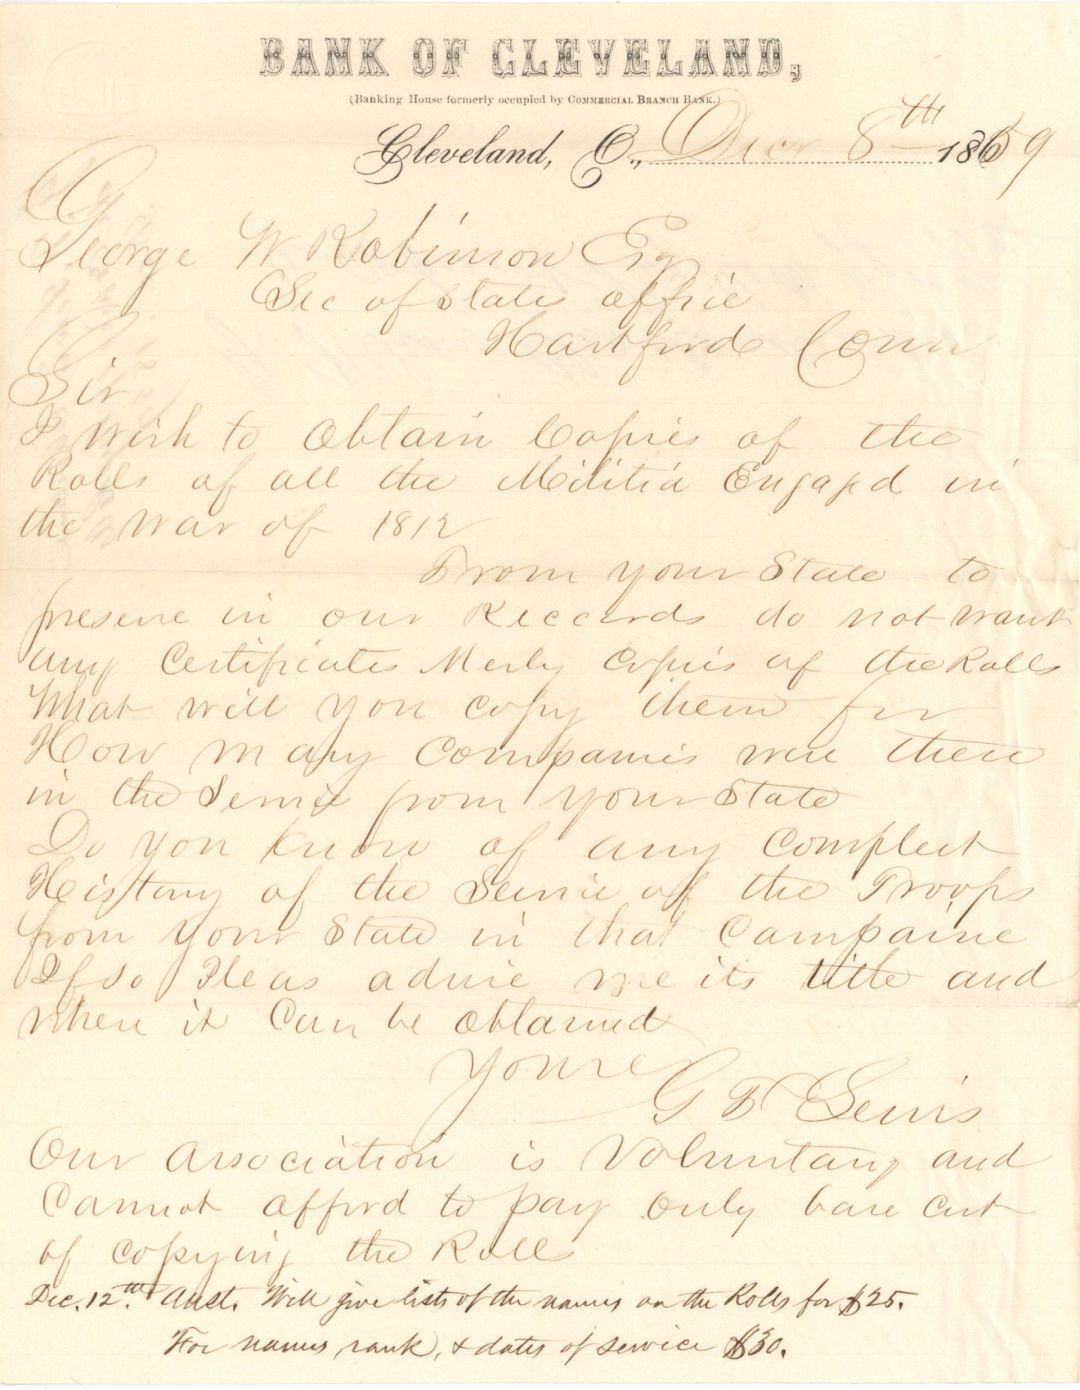 BANK OF CLEVELAND,
(Banking House formerly occupied by COMMERCIAL BRANCH BANK.)
Cleveland, O., Decr 8th 1869
George W Robinson Esq
Sec of State office
Hartford Conn
Sir
I wish to obtain Copies of the
Rolls of all the Militia Engaged in
the War of 1812
From your State to
preserve in our Reccords do not want
any Certificates Merly Copies of the Rolls
What will you copy them for
How many Companies were there
in the Service from your State
Do you know of any Compleet
History of the Service of the Troops
from your State in that Campaine
If so Pleas advise me its title and
where it Can be obtained
Yours
G D Lewis
Our Association is Voluntary and
Cannot afford to pay only bare cost
of copying the Roll
Dec. 12th. Anst. Will give lists of the names on the Rolls for $25.
For names, rank, & dates of service $30.